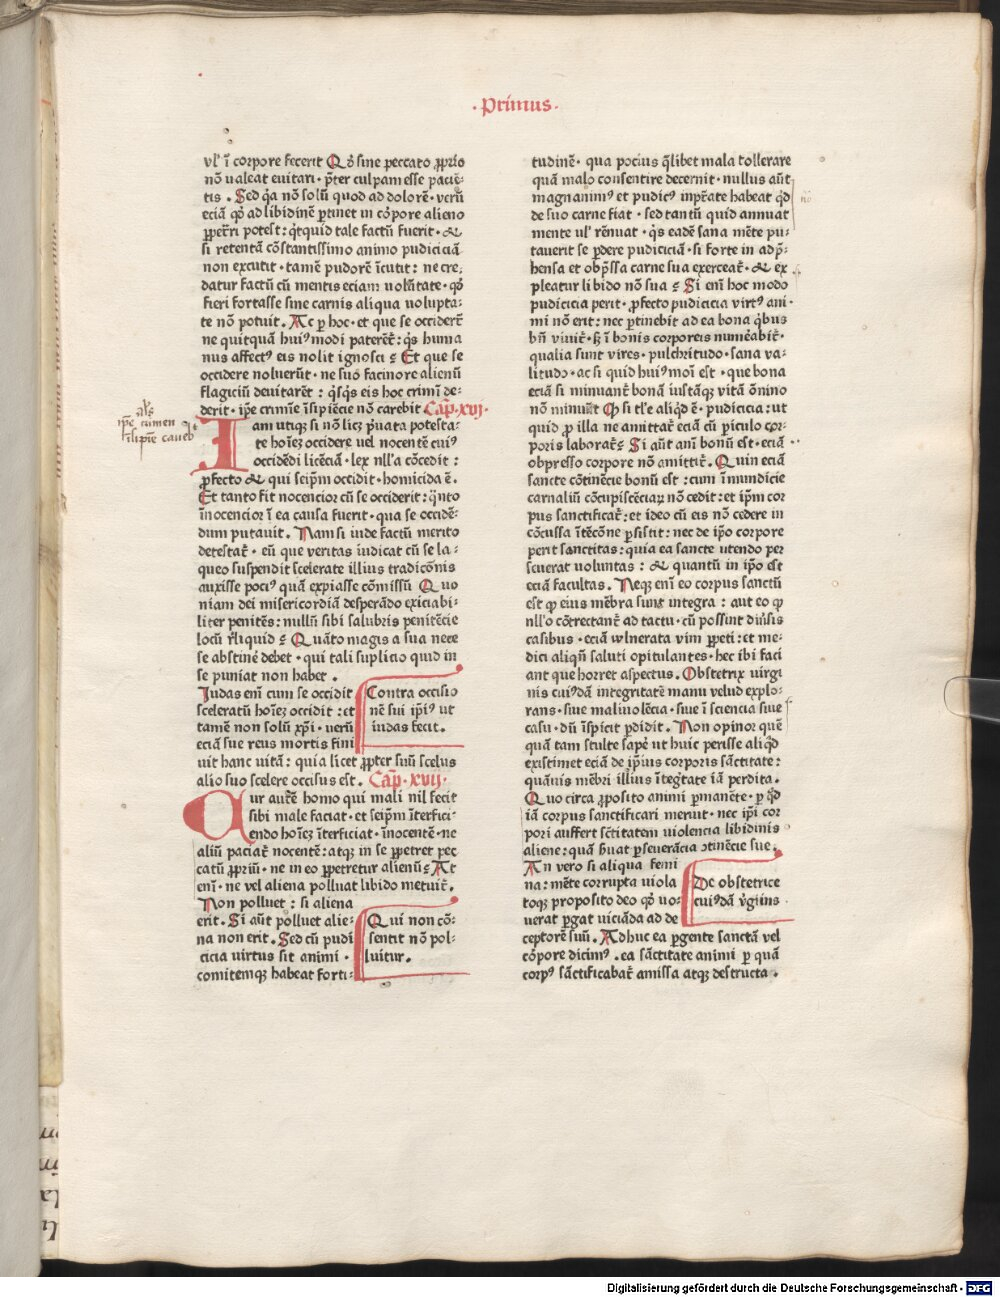 · Primus ·
vl' ī corpore fecerit Qđ sine peccato ꝓprio
nō ualeat euitari · p̄ter culpam esse pacie-
tis . Sed q̇a nō solū quod ad dolorē · verū
eciā qđ ad libidinē ꝑtinet in cōpore alieno
ꝑpet̄ri potest : q̇tquid tale factū fuerit · &
si retentā cōstantissimo animo pudiciciā
non excutit · tamē pudorē īcutit : ne cre-
datur factū cū mentis eciam volūtate · qđ
fieri fortasse sine carnis aliqua volupta-
te nō potuit . Ac ꝑ hoc · et que se occiderēt
ne quitquā huiꝰ modi paterēt᷑ : q̇s huma
nus affectꝰ eis nolit ignosci ? Et que se
occidere noluerūt · ne suo facinore alienū
flagiciū deuitarēt : q̇sq̇s eis hoc crimī de-
derit · ip̄e crimīe īsipiēcie nō carebit . Cap̄ · xvj ·
Iam utiqꝫ si nō licꝫ p̄uata potesta-
te hoīeꝫ occidere uel nocentē cuiꝰ
occidēdi licēciā · lex nll'a cōcedit :
ꝓfecto & qui seip̄m occidit · homicida ē .
Et tanto fit nocencior cū se occiderit : q̇nto
īnocencior ī ea causa fuerit · qua se occidē-
dum putauit . Nam si iude factū merito
detestat᷑ · eū que veritas iudicat cū se la-
queo suspendit scelerate illius tradicōnis
auxisse pociꝰ quā expiasse cōmissū Quo
niam dei misericordiā desperādo exiciabi-
liter penitēs : nullū sibi salubris penitēcie
locū r̄liquid ? Quāto magis a sua nece
se abstinē debet · qui tali suplicio quid in
se puniat non habet .
Iudas enī cum se occidit
sceleratū hoīeꝫ occidit : et
tamē non solū xp̄i · verū
eciā sue reus mortis fini
Contra occisio
nē sui ip̄iꝰ ut
iudas fecit .
uit hanc uitā : quia licet ꝓpter suū scelus
alio suo scelere occisus est . Cap̄ · xvij ·
Cur autē homo qui mali nil fecit
sibi male faciat · et seip̄m īterfici-
endo hoīeꝫ īterficiat · īnocentē · ne
aliū paciat᷑ nocentē : atqꝫ in se ꝑpetret pec
catū ꝓpriū · ne in eo ꝑpetretur alienū ? At
enī · ne vel aliena polluat libido metuit᷑ .
Non polluet : si aliena
erit . Si aūt polluet alie-
na non erit . Sed cū pudi
cicia virtus sit animi ·
comitemqꝫ habeat forti-
Qui non cō-
sentit nō pol-
luitur .
tudinē · qua pocius q̄libet mala tollerare
quā malo consentire decernit · nullus aūt
magnanimꝰ et pudicꝰ inp̄tate habeat q̇d
de suo carne fiat · sed tantū quid annuat
mente ul' rēnuat · q̇s eadē sana mēte pu-
tauerit se ꝑdere pudiciciā · si forte in adp̄-
hensa et obp̄ssa carne sua exerceat᷑ · & ex
pleatur libido nō sua ? Si enī hoc modo
pudicicia perit · ꝓfecto pudicicia virtꝰ ani ·
mi nō erit : nec ꝑtinebit ad ea bona q̇bus
bn̄ viuit᷑ · sꝫ ī bonis corporeis numēabit᷑ ·
qualia sunt vires · pulchritudo · sana va-
litudo · ac si quid huiꝰmoī est · que bona
eciā si minuant᷑ bonā iustāqꝫ vitā ōnino
nō minuūt Qđ si tl'e aliq̇d ē · pudicia : ut
quid ꝓ illa ne amittat᷑ eciā cū periculo cor-
poris laborat᷑ ? Si aūt anī bonū est · eciā
obpresso corpore nō amittit᷑ . Quin eciā
sancte cōtinēcie bonū est : cum īmundicie
carnaliū cōcupiscēciaꝝ nō cedit : et ip̄m cor
pus sanctificat᷑ : et ideo cū eis nō cedere in
cōcussa ītēcōne ꝑsistit : nec de ip̄o corpore
perit sanctitas : quia ea sancte utendo per
seuerat voluntas : & quantū in ip̄o est
eciā facultas . Neqꝫ enī eo corpus sanctū
est ꝙ eius mēbra sunt integra : aut eo ꝙ
nll'o cōtrectant᷑ ad tactu · cū possint diūsis
casibus · eciā wlnerata vim ꝑpeti : et me-
dici aliqn̄ saluti opitulantes · hec ibi faci
ant que horret aspectus . Obstetrix uirgi
nis cuiꝰdā integritatē manu velud explo-
rans · siue maliuolēcia · siue ī sciencia siue
casu · dū īspicit ꝑdidit . Non opinor quē
quā tam stulte sapē ut huic perisse aliq̇d
existimet eciā de ip̄ius corporis sāctitate :
quāuis mēbri illius ītegtate iā perdita .
Quo circa ꝓposito animi ꝑmanēte · ꝑ q̇d
iā corpus sanctificari meruit · nec ip̄i cor
pori auffert sc̄titatem uiolencia libidinis
aliene : quā ẜuat ꝑseuerācia ↄtinēcie sue .
An vero si aliqua femi
na : mēte corrupta uiola
toqꝫ proposito deo qđ uo-
uerat ꝑgat uiciāda ad de
De obstetrice
cuiꝰdā v̇giīns
ceptorē suū . Adhuc ea ꝑgente sanctā vel
cōpore dicimꝰ · ea sāctitate animi ꝑ quā
corpꝰ sāctificabat᷑ amissa atqꝫ destructa .
Digitalisierung gefördert durch die Deutsche Forschungsgemeinschaft - DFG